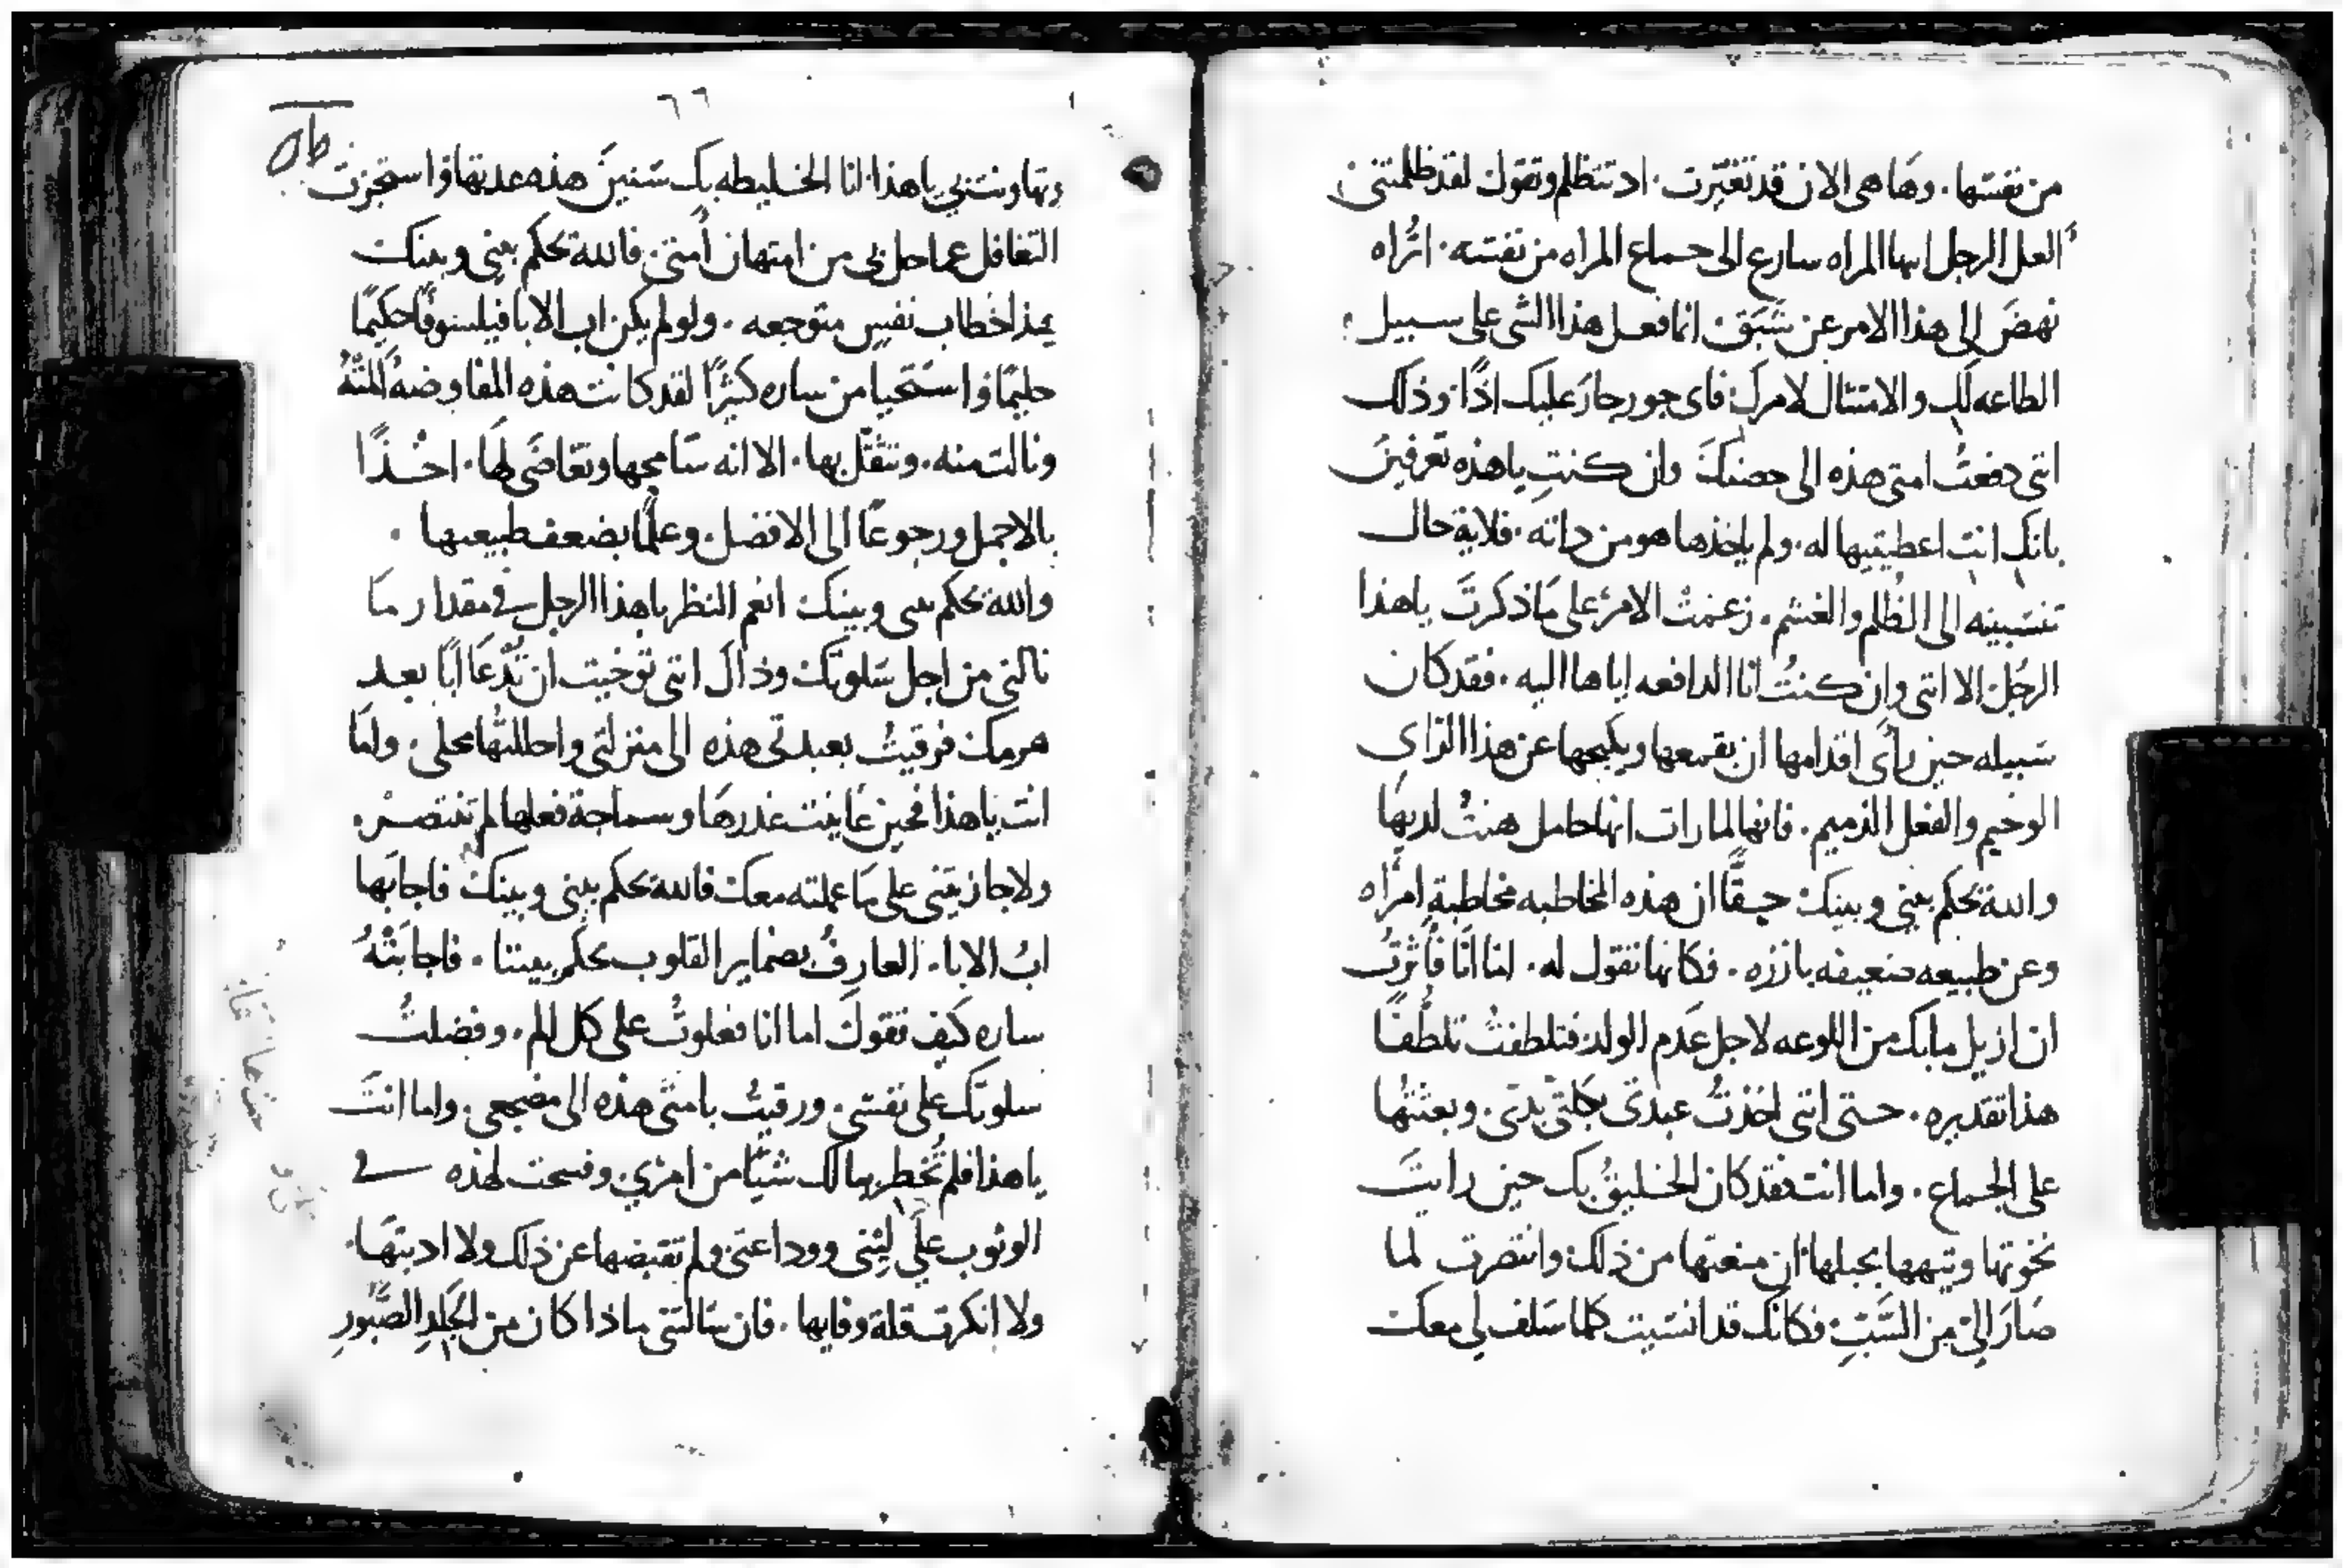 من نفسها . وهاهى الان قد تغيّرت . اد تتظلم وتقول لقد ظلمتنى
العل الرجل ايها المراه سارع الى جماع المراه من نفسه . اتُراه
نهضَ الى هذا الامر عن شَبَق . انما فعل هذا الشى على سبيل
الطاعه لكِ والامتثال لامركِ فاى جور جارَ عليك اذًا . وذلك
انتى دفعتُ امتى هذه الى حضنكَ وان كنتِ ياهذه تعرفينَ
بانكِ انتِ اعطيتيها له . ولم ياخذها هو من داته . فلاية حال
تنسبينه الى الظلم والغشم . زعمتْ الامرُ على مَا ذكرتَ ياهذا
الرجُل الا انتى وان كنتُ انا الدافعه اياها اليه . فقد كان
سَبيله حين رأى اقدامها ان يقمعها ويكبحها عن هذا الراى
الوخيم والفعل الذميم . فانها لما رات انها حامل هنتُ لديها
والله يحكم بينى وبينك حقًّا ان هذه المخاطبه مخاطبةِ امرَاه
وعن طبيعه ضعيفه بارزه . فكانها تقول له . اما انَا فأثرتُ
ان ازيل مابك من اللوعه لاجل عَدم الولد فتلطفتُ تلطُّفًا
هذا تقديره . حتى انتى اخذتُ عبدتى بكلتى يدى . وبعثتُها
على الجماع . واما انت فقد كان الخليقُ بك حين رايتَ
نخوتها وتيهها بحبلها ان منعتها من ذلك وانتصرت لما
صَارَ الىّ من السَّبّ فكانك قد انسَيت كلما سَلف لى معك
٦٦
وتهاونت بى ياهذا . انا الخليطه بك سَنينَ هذه عدتها واستجزت
التغافل عما حل بى من امتهان أمتى . فالله يحكم بينى وبينك
يمذا خطاب نفسٍ متوجعه . ولو لم يكن اب الابا فيلسوفًا حكيمًا
حليمًا واستَحيا من ساره كثيرًا لقد كانت هذه المفاوضهُ المتهُ
ونالت منه . وتثقّل بها . الا انه سَامحها وتغاضَى لها . اخْذًا
بالاجمل ورجوعًا الى الافضل . وعلمًا بضعف طبيعتها .
والله يحكم بينى وبينك انعم النظر ياهذا الرجل فى مقدار مَا
نالنى من اجل سَلوتك وذاكَ انتى توخيت ان تُدعَا ابًا بعد
هرمك فرقيتُ بعبدتى هذه الى منزلتى واحللتُها محلى . وامَا
انت ياهذا فحين عَاينت غدرهَا وسماجة فعلها لم تنتصرْ .
ولا جازيتنى على مَا عملته معك فالله يحكم بينى وبينك فاجابَها
ابُ الابا . العارفُ بضماير القلوب يحكم بيننا . فاجابَتْهُ
ساره كيف تقولَ اما انا فعلوتُ على كل الم . وفضلتُ
سلوتك على نفسى . ورقيتُ بامتى هذه الى مضجعى . واما انتَ
ياهذا فلم تُخطر ببالك شيًّا من امرى وفسحت لهذه فى
الوثوب علَى ليِنى ووداعتى ولم تقبضها عن ذلك ولا ادبتهَا .
ولا انكرت قلة وفايها . فان سَالتنى ماذا كان من الجَلدِ الصّبُورِ